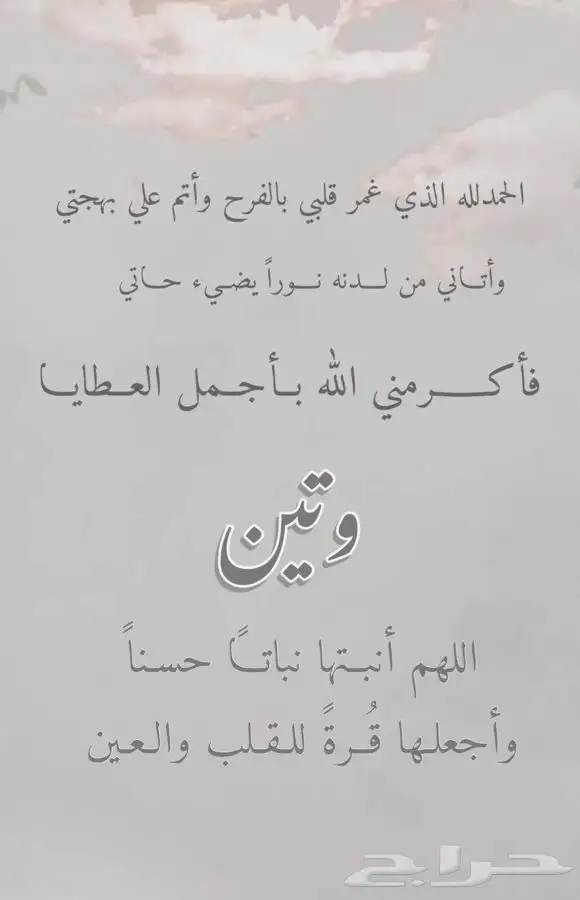 الحمدلله الذي غمر قلبي بالفرح وأتم علي بهجتي
وأتاني من لدنه نوراً يضيء حاتي
فأكرمني الله بأجمل العطايا
وتين
اللهم أنبتها نباتاً حسناً
وأجعلها قُرةً للقلب والعين
حراج